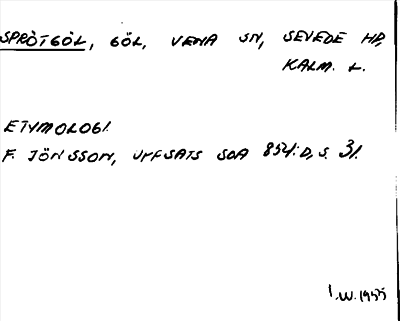 SPRÖTGÖL, GÖL, VENA SN, SEVEDE HD,
KALM. L.
ETYMOLOGI.
F. JÖNSSON, UPPSATS SOA 854:D, S. 31.
I.W. 1955